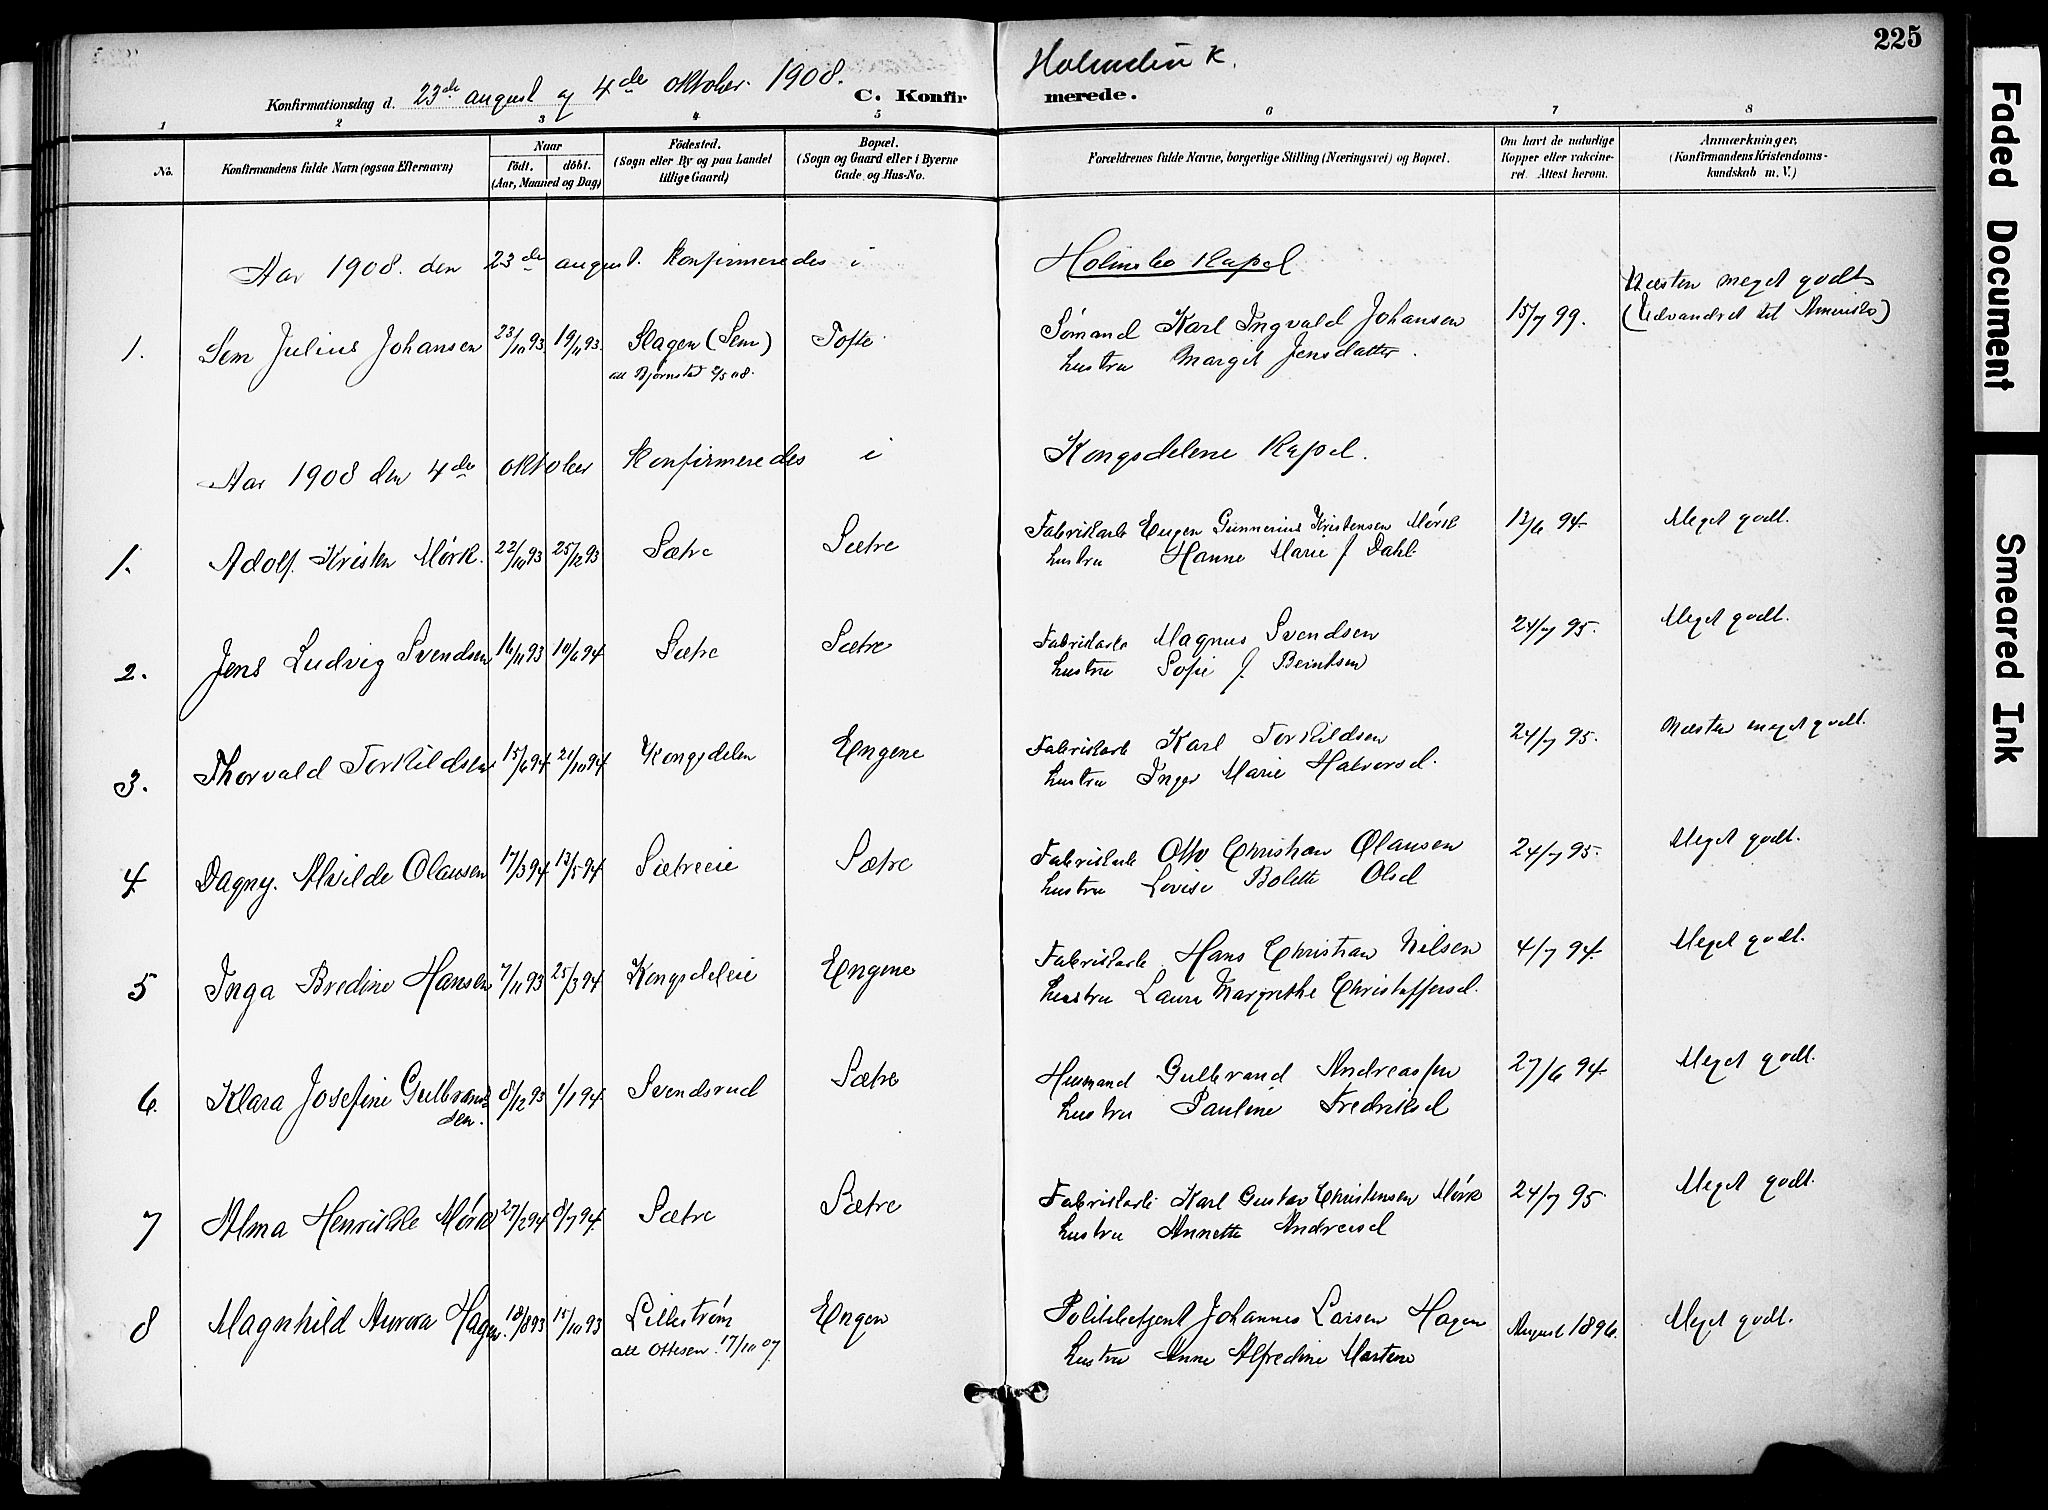 225
Konfirmationsdag d. 23de august og 4de oktober 1908.
C. Konfirmerede.
1 2 3 4 5 6 7 8
No.
Konfirmandens fulde Navn (ogsaa Efternavn)
Naar
Födt. döbt.
(Aar, Maaned og Dag)
Födested.
(Sogn eller By og paa Landet
tillige Gaard)
Bopæl.
(Sogn og Gaard eller i Byerne
Gade og Hus-No.
Forældrenes fulde Navne, borgerlige Stilling (Næringsvei) og Bopæl.
Om havt de naturlige
Kopper eller vaccine-
ret. Attest herom.
Anmærkninger.
(Konfirmandens Kristendoms-
kundskab m. V.)
Aar 1908. den 23de august. konfirmeredes i Holmsbo Kapel
1. Sem Julius Johansen 23/10 93 19/11 93 Slagen (Sem) Tofte Sømand Karl Ingvald Johansen 15/7 99. Næsten meget godt
att Bjørnstad 2/5 08. hustru Margit Jensdatter. (Udvandret til Amerika)
Aar 1908 den 4de oktober konfirmeredes i Kongsdelene Kapel.
1. Adolf Kristen Mørk. 22/10 93 25/12 93 Sætre Sætre Fabrikarb Eugen Gunnerius Kristensen Mørk 12/6 94. Meget godt.
hustru Hanne Marie f Dahl
2. Jens Ludvig Svendsen 16/11 93 10/6 94 Sætre Sætre Fabrikarb Magnus Svendsen 24/7 95. Meget godt.
hustru Sofie f. Berntsen
3. Thorvald Torkildsen 15/6 94 21/10 94 Kongsdelen Engene Fabrikarb Karl Torkildsen 24/7 95. Næsten meget godt.
hustru Inger Marie Halvorsd.
4 Dagny Alvilde Olausen 17/3 94 13/5 94 Sætreeie Sætre Fabrikarb Otto Christian Olausen 24/7 95. Meget godt.
hustru Lovise Bolette Olsd
5 Inga Bredine Hansen 7/11 93 25/3 94 Kongsdeleie Engene Fabrikarb Hans Christian Nilsen 4/7 94. Meget godt.
hustru Laura Margrethe Christoffersd.
6. Klara Josefine Gulbrand- 8/12 93 1/1 94 Svendsrud Sætre Husmand Gulbrand Andreassen 27/6 94 Meget godt.
sen. hustru Pauline Fredriksd
7 Alma Henrikke Mørk 27/2 94 8/7 94. Sætre Sætre Fabrikarb Karl Gustav Christensen Mørk 24/7 95. Meget godt.
hustru Annette Andreasd
8 Magnhild Aurora Hagen. 18/8 93 15/10 93 Lillestrøm Engen Politibetjent Johannes Larsen Hagen August 1896. Meget godt.
att Ottesen. 17/10 07. hustru Anne Alfredine
Faded Document
Smeared Ink